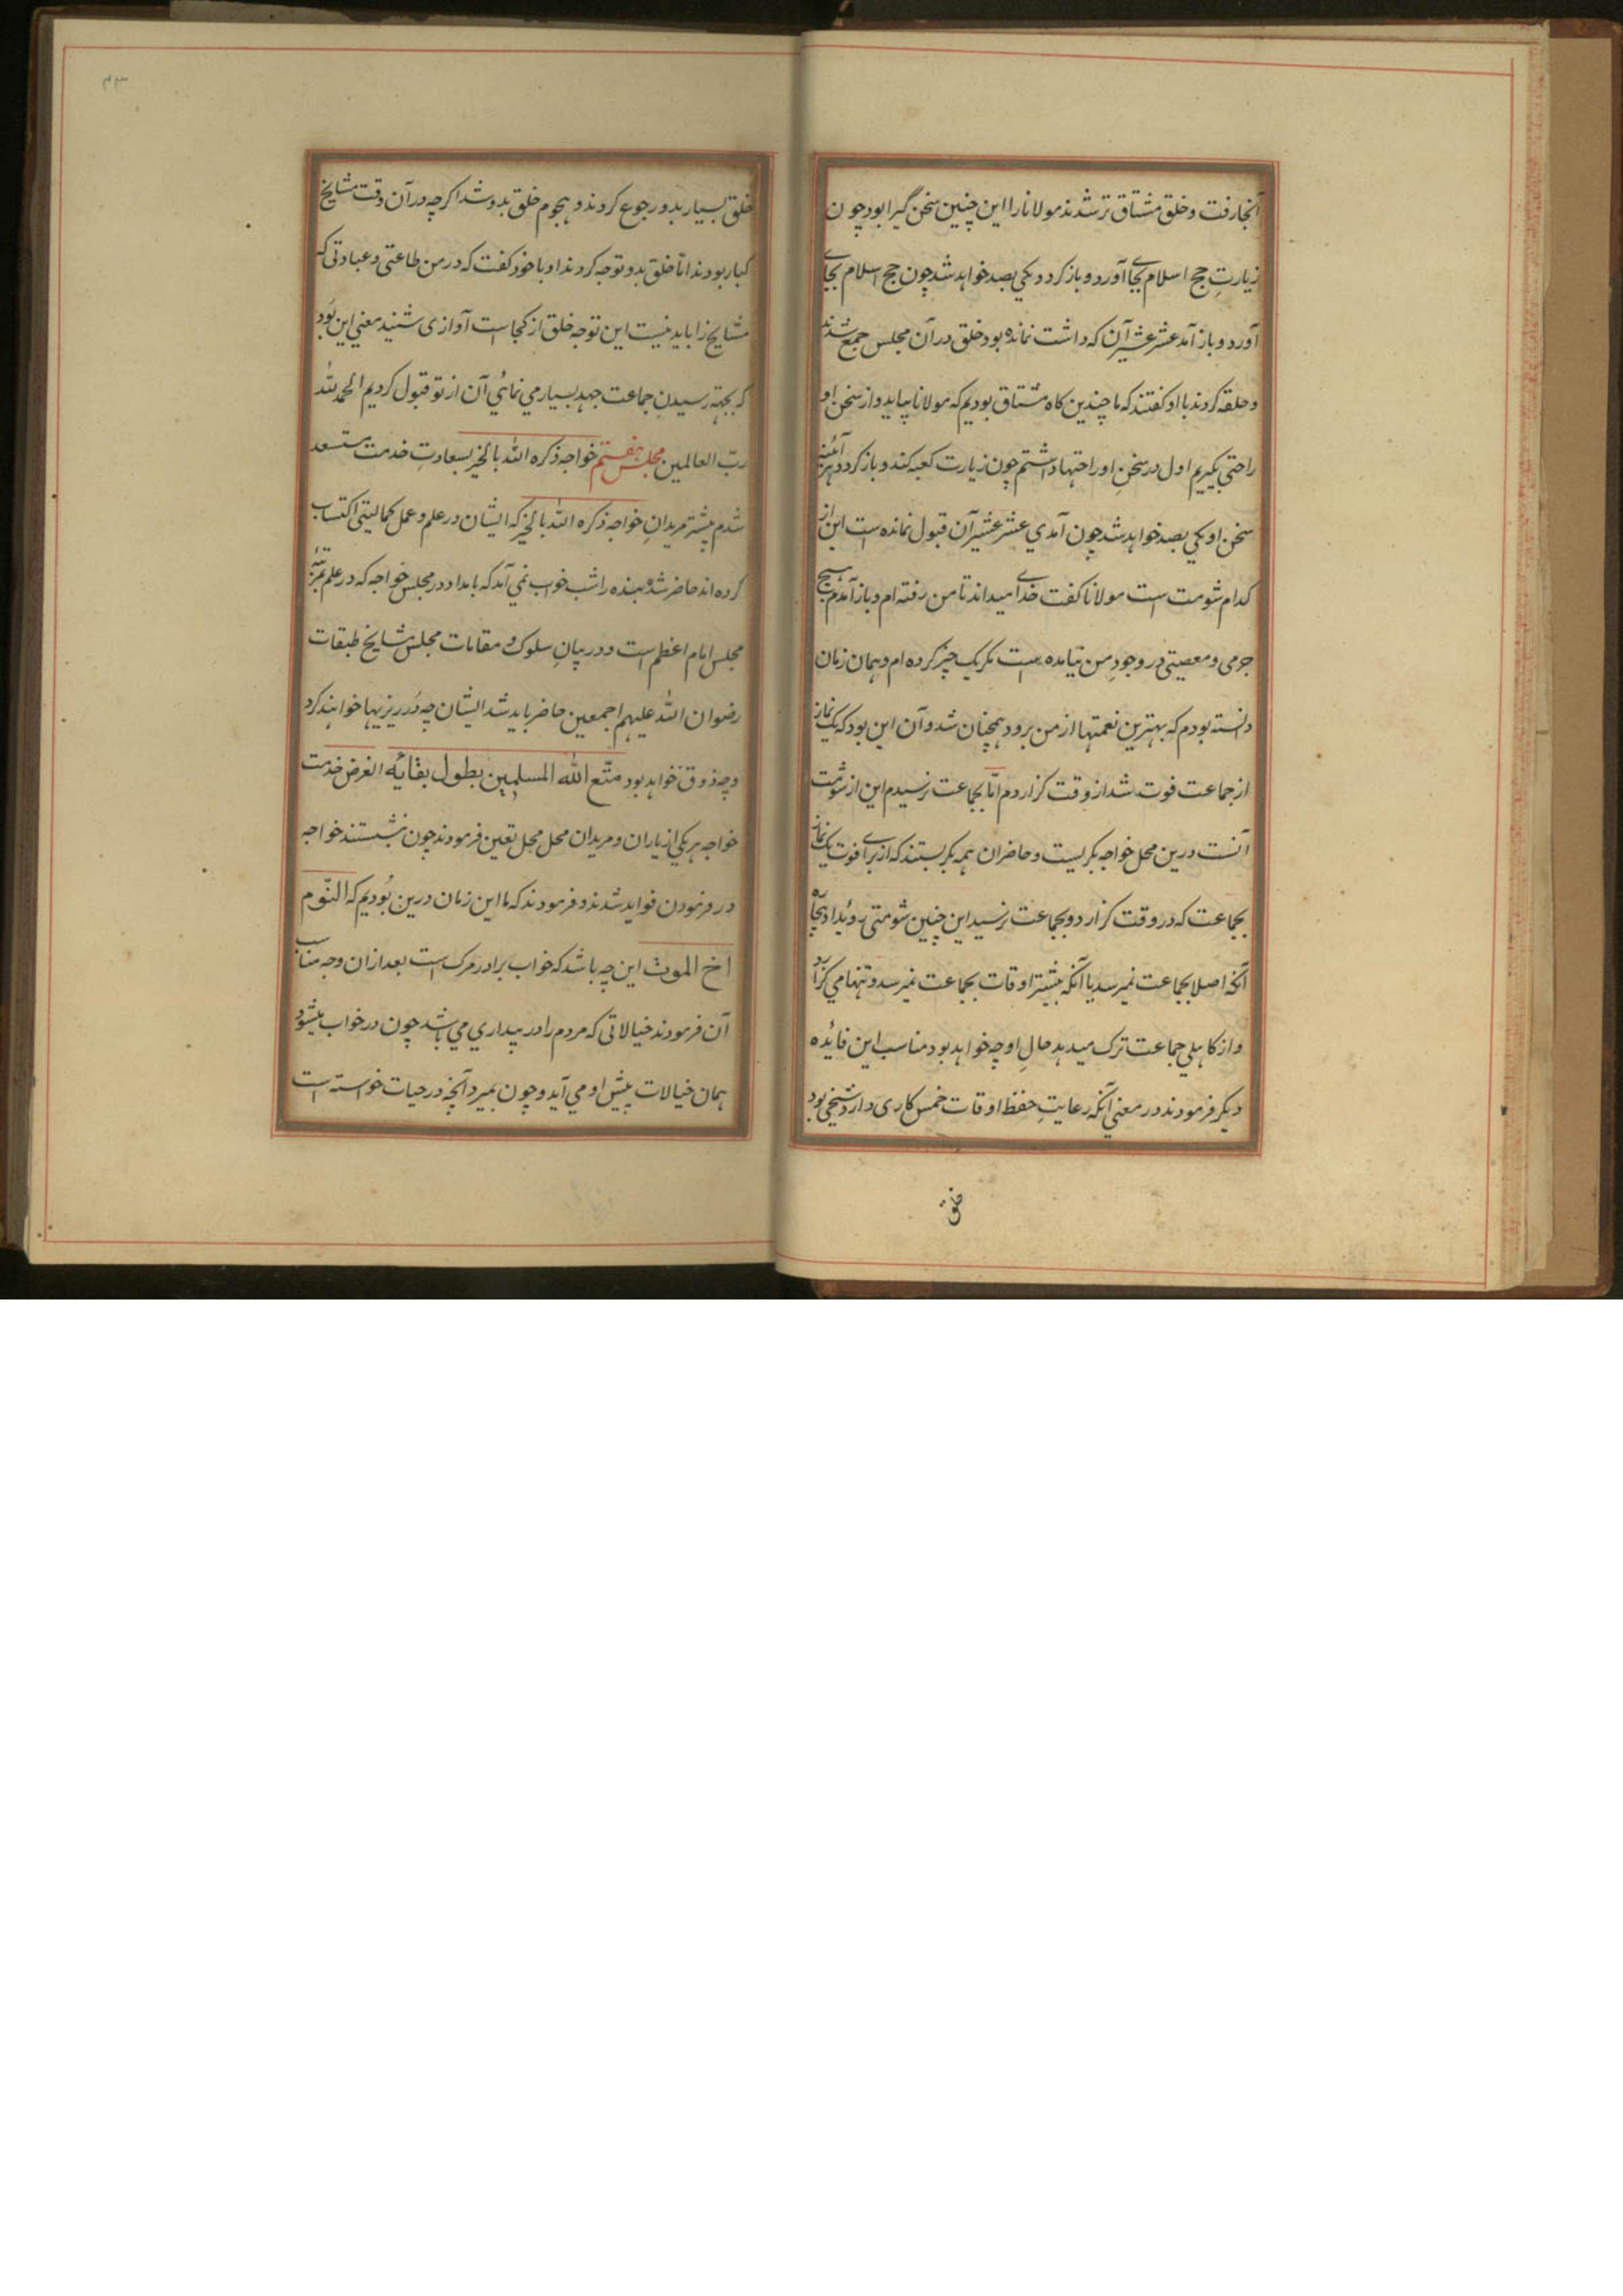 آنجا رفت و خلق مشتاق تر شدند مولانا را این چنین سخن گیرا بود چون
زیارتِ حج اسلام بجای آورد و باز کردد یکی بصد خواهد شد چون حج اسلام بجای
آورد و باز آمد عشر عشیر آن که داشت نمانده بود خلق در آن مجلس جمع شدند
و حلقه کردند با او کفتند که ما چندین کاه مشتاق بودیم که مولانا بیاید و از سخن او
راحتی بکیریم اول در سخنِ او راحتها داشتم چون زیارت کعبه کند و باز کردد هر آئینه
سخن او یکی بصد خواهد شد چون آمدی عشر عشیر آن قبول نمانده است این از
کدام شومت است مولانا کفت خدای میداند تا من رفته ام و باز آمدم هیچ
جرمی و معصیتی در وجودِ من نیامده است مکر یک چیز کرده ام و همان زمان
دانسته بودم که بهترین نعمتها از من برود همچنان شد و آن این بود که یک نماز
از جماعت فوت شد از وقت کزاردم امّا بجماعت نرسیدم این از شومت
آنست درین محل خواجه بکریست و حاضران همه بکریستند که از برای فوت یک نماز
بجماعت که در وقت کزارد و بجماعت نرسید این چنین شومتی روئیداد بیچاره
آنکه اصلا بجماعت نمیرسد یا آنکه بیشتر اوقات بجماعت نمیرسد و تنها می کزارد
و از کاهلی جماعت ترک میدهد حالِ او چه خواهد بود مناسب این فائده
دیکر فرمودند در معنی آنکه رعایتِ حفظ اوقات خمس کاری دارد شیخی بود
خلق
۴۳
خلق بسیار بدو رجوع کردند و هجوم خلق بدو شد اکرچه در آن وقت مشایخ
کبار بودند امّا خلق بدو توجه کردند او با خود کفت که در من طاعتی و عبادتی که
مشایخ را باید نیست این توجه خلق از کجا است آوازی شنید معنی این بُود
که بجهة رسیدنِ جماعت جهد بسیار می نمائی آن از تو قبول کردیم الحمد لله
ربّ العالمین مجلس هفتم خواجه ذکره الله بالخیر بسعادتِ خدمت مستسعد
شدم پیشتر مریدانِ خواجه ذکره الله بالخیر که ایشان در علم و عمل کمالیتی اکتساب
کرده اند حاضر شده بنده را شب خواب نمی آمد که بامداد در مجلس خواجه که در علم بمرتبهٔ
مجلس امام اعظم است و در بیانِ سلوک و مقامات مجلس مشایخ طبقات
رضوان الله علیهم اجمعین حاضر باید شد ایشان چه دُرر ریزیها خواهند کرد
و چه ذوق خواهد بود متّع الله المسلمین بطول بقائه الغرض خدمت
خواجه هر یکی از یاران و مریدان محل محل تعین فرمودند چون بنشستند خواجه
در فرمودن فواید شدند و فرمودند که ما این زمان درین بُودیم که النّوم
اخ الموت این چه باشد که خواب برادر مرک است بعد از ان وجه مناسب
آن فرمودند خیالاتی که مردم را در بیداری می باشد چون در خواب میشود
همان خیالات پیش او می آید و چون بمیرد آنچه در حیات خواسته است